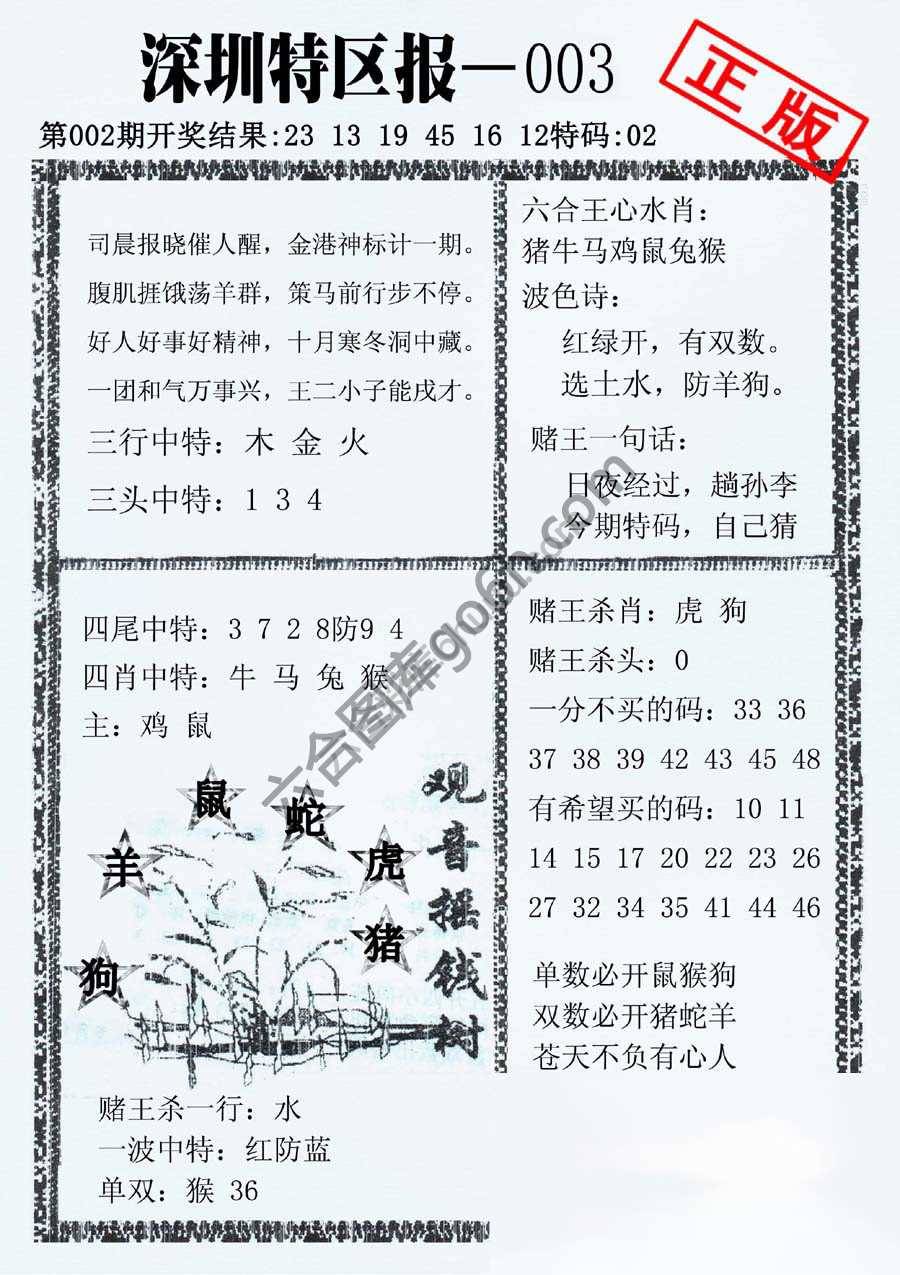 深圳特区报—003
正版
第002期开奖结果:23 13 19 45 16 12特码:02
司晨报晓催人醒，金港神标计一期。
腹肌捱饿荡羊群，策马前行步不停。
好人好事好精神，十月寒冬洞中藏。
一团和气万事兴，王二小子能戌才。
三行中特：木 金 火
三头中特：1 3 4
六合王心水肖：
猪牛马鸡鼠兔猴
波色诗：
红绿开，有双数。
选土水，防羊狗。
赌王一句话：
日夜经过，趟孙李
今期特码，自己猜
四尾中特：3 7 2 8防9 4
四肖中特：牛 马 兔 猴
主：鸡 鼠
鼠
蛇
羊
虎
猪
狗
观音摇钱树
赌王杀一行：水
一波中特：红防蓝
单双：猴 36
赌王杀肖：虎 狗
赌王杀头：0
一分不买的码：33 36
37 38 39 42 43 45 48
有希望买的码：10 11
14 15 17 20 22 23 26
27 32 34 35 41 44 46
单数必开鼠猴狗
双数必开猪蛇羊
苍天不负有心人